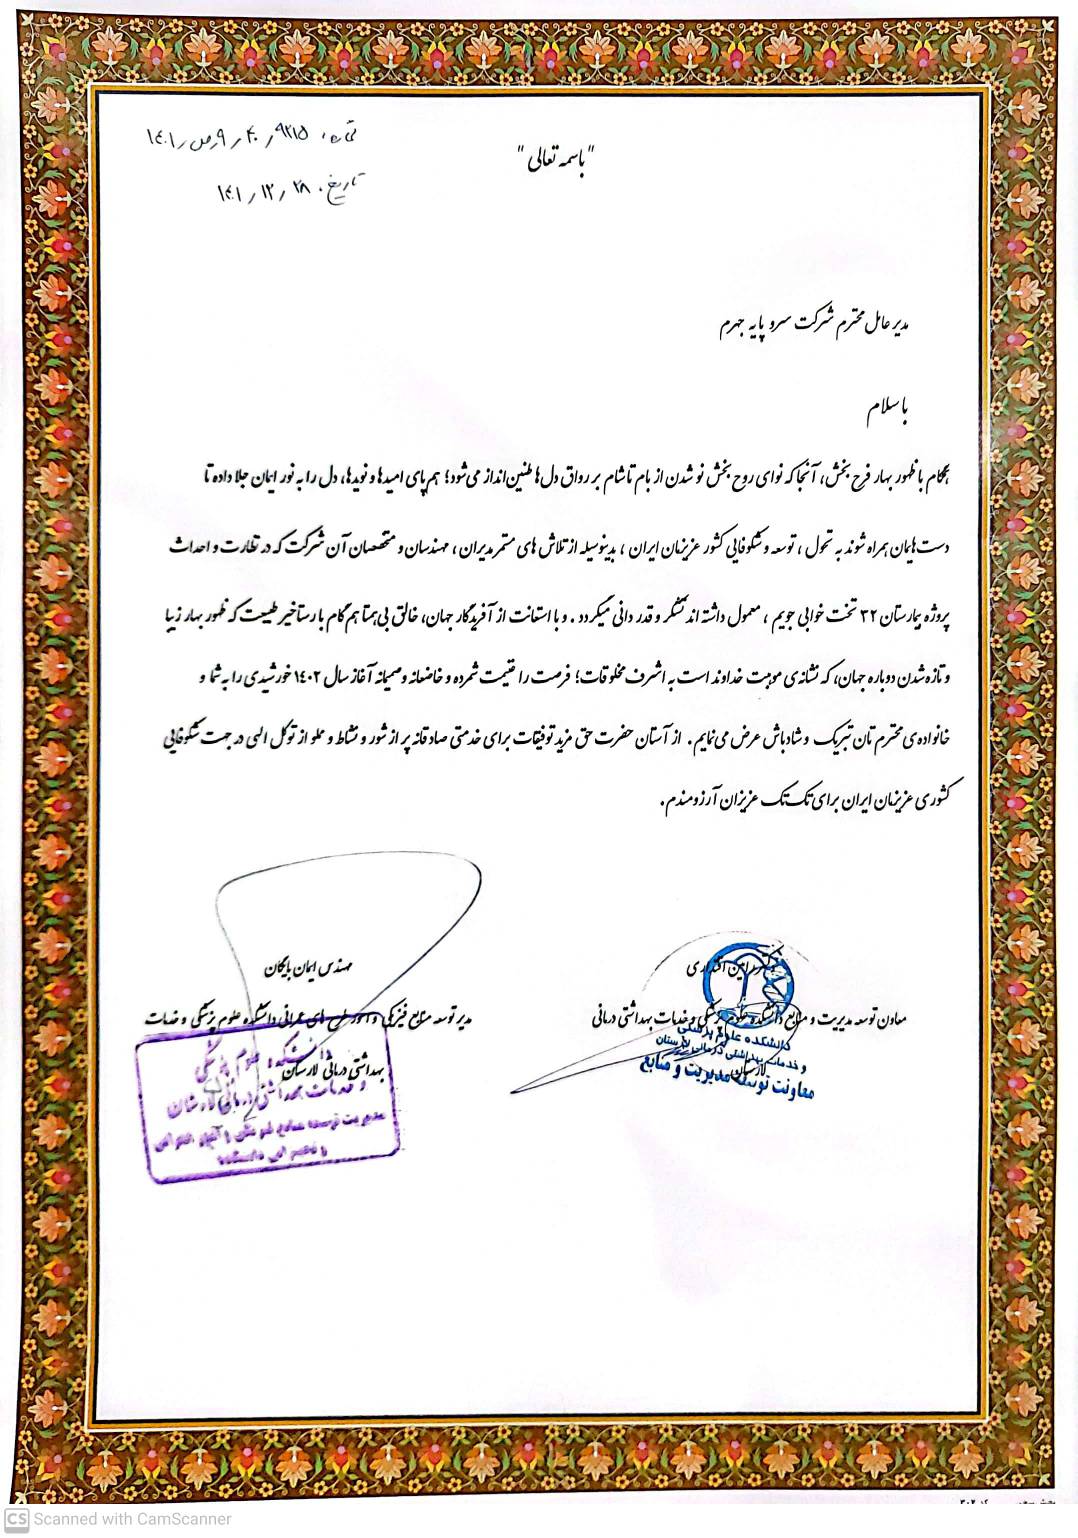 "باسمه تعالی"
شماره: ۱۴۰۱/ص/۹/۲۰/۹۲۱۵
تاریخ: ۱۴۰۱/۱۲/۲۸
مدیر عامل محترم شرکت سرو پایه جهرم
با سلام
هنگام با ظهور بهار فرح بخش، آنجا که نوای روح بخش نو شدن از بام تا شام بر رواق دل‌ها طنین‌انداز می‌شود؛ هم‌پای امیدها و نویدها، دل را به نور ایمان جلا داده تا
دست‌هایمان همراه شوند به تحول، توسعه و شکوفایی کشور عزیزمان ایران، بدینوسیله از تلاش های مستمر مدیران، مهندسان و متخصصان آن شرکت که در نظارت و احداث
پروژه بیمارستان ۳۲ تخت خوابی جویم، معمول داشته اند تشکر و قدر دانی میگردد. و با استعانت از آفریدگار جهان، خالق بی‌همتا هم گام با رستاخیز طبیعت که ظهور بهار زیبا
و تازه شدن دوباره جهان، که نشانه‌ی موهبت خداوند است به اشرف مخلوقات؛ فرصت را غنیمت شمرده و خاضعانه و صمیمانه آغاز سال ۱۴۰۲ خورشیدی را به شما و
خانواده‌ی محترم تان تبریک و شادباش عرض می‌نمایم. از آستان حضرت حق مزید توفیقات برای خدمتی صادقانه پر از شور و نشاط و مملو از توکل الهی در جهت شکوفایی
کشوری عزیزمان ایران برای تک تک عزیزان آرزومندم.
دکتر رامین اقتداری
معاون توسعه مدیریت و منابع دانشکده علوم پزشکی و خدمات بهداشتی درمانی
لارستان
دانشکده علوم پزشکی
و خدمات بهداشتی درمانی لارستان
معاونت توسعه مدیریت و منابع
مهندس ایمان بایگان
مدیر توسعه منابع فیزیکی و امور طرح های عمرانی دانشکده علوم پزشکی و خدمات
بهداشتی درمانی لارستان
دانشکده علوم پزشکی
و خدمات بهداشتی درمانی لارستان
مدیریت توسعه منابع فیزیکی و امور عمرانی
کد ۳۰۲
CS Scanned with CamScanner